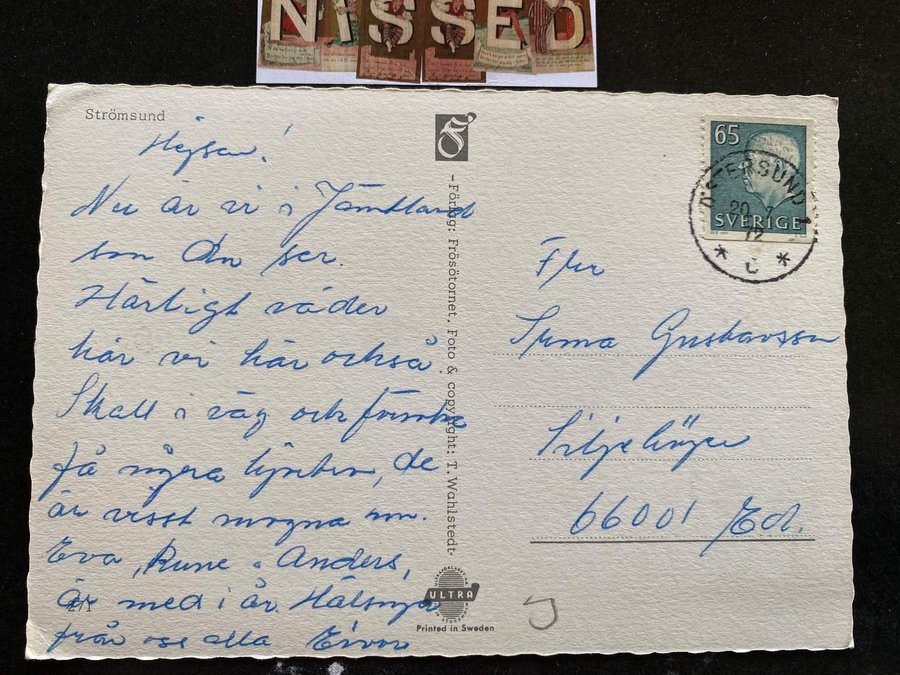 NISSED
Strömsund
Hejsan!
Nu är vi i Jämtland
som du ser.
Härligt väder
har vi här också.
Skall i väg och försöka
få några hjortron, de
är visst mogna nu.
Eva, Rune o Anders,
är med i år. Hälsningar
från oss alla Eivor
2/1
-Förlag: Frösötornet, Foto & copyright: T. Wahlstedt-
ULTRA
Printed in Sweden
65
SVERIGE
ÖSTERSUND 1
20
72
Fru
Gustavsson
66001 Ed.